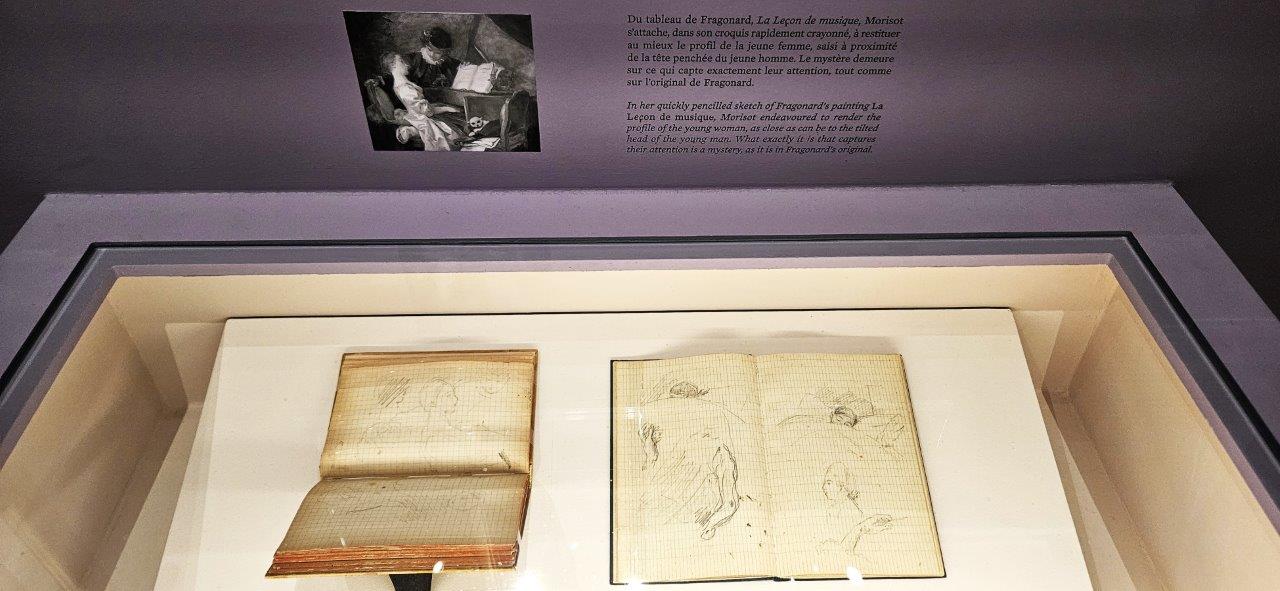 Du tableau de Fragonard, La Leçon de musique, Morisot
s'attache, dans son croquis rapidement crayonné, à restituer
au mieux le profil de la jeune femme, saisi à proximité
de la tête penchée du jeune homme. Le mystère demeure
sur ce qui capte exactement leur attention, tout comme
sur l'original de Fragonard.
In her quickly pencilled sketch of Fragonard's painting La
Leçon de musique, Morisot endeavoured to render the
profile of the young woman, as close as can be to the tilted
head of the young man. What exactly it is that captures
their attention is a mystery, as it is in Fragonard's original.